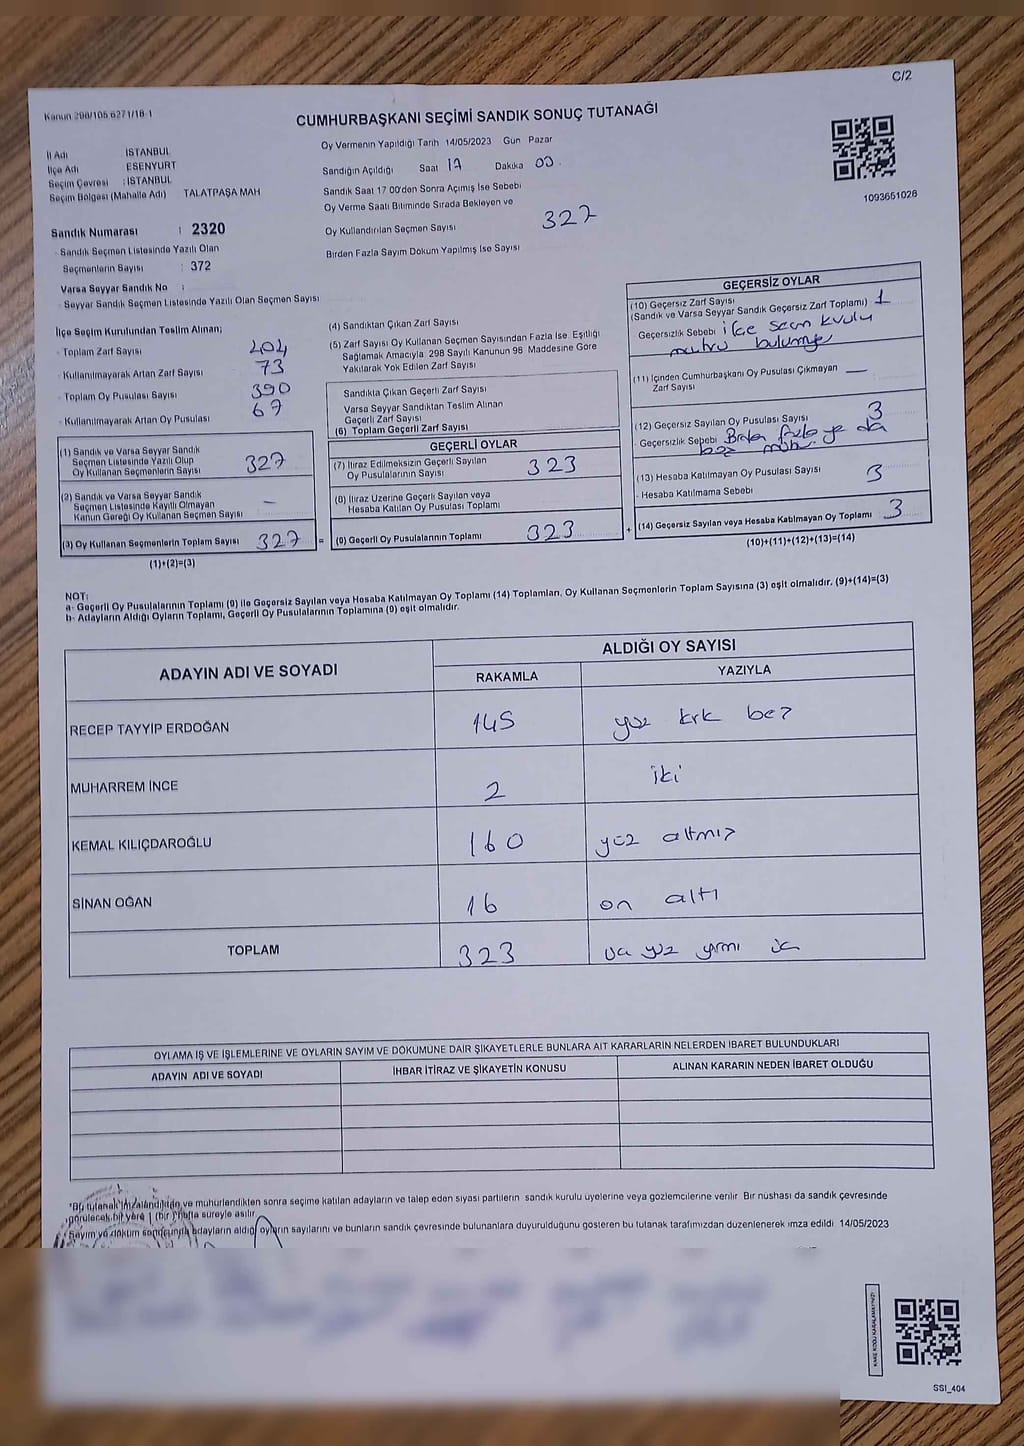 C/2
Kanun 298/105 6271/18-1
CUMHURBAŞKANI SEÇİMİ SANDIK SONUÇ TUTANAĞI
İl Adı : İSTANBUL
İlçe Adı : ESENYURT
Seçim Çevresi : İSTANBUL
Seçim Bölgesi (Mahalle Adı) TALATPAŞA MAH
Oy Vermenin Yapıldığı Tarih 14/05/2023 Gün Pazar
Sandığın Açıldığı Saat 17 Dakika 00
Sandık Saat 17 00'den Sonra Açımış İse Sebebi
Oy Verme Saati Bitiminde Sırada Bekleyen ve
Oy Kullandırılan Seçmen Sayısı 327
Birden Fazla Sayım Döküm Yapılmış İse Sayısı
1093651028
Sandık Numarası : 2320
- Sandık Seçmen Listesinde Yazılı Olan
Seçmenlerin Sayısı : 372
Varsa Seyyar Sandık No :
- Seyyar Sandık Seçmen Listesinde Yazılı Olan Seçmen Sayısı
İlçe Seçim Kurulundan Teslim Alınan;
- Toplam Zarf Sayısı 404
- Kullanılmayarak Artan Zarf Sayısı 73
- Toplam Oy Pusulası Sayısı 390
- Kullanılmayarak Artan Oy Pusulası 67
(1) Sandık ve Varsa Seyyar Sandık
Seçmen Listesinde Yazılı Olup
Oy Kullanan Seçmenlerin Sayısı 327
(2) Sandık ve Varsa Seyyar Sandık
Seçmen Listesinde Kayıtlı Olmayan
Kanun Gereği Oy Kullanan Seçmen Sayısı –
(3) Oy Kullanan Seçmenlerin Toplam Sayısı 327 =
(1)+(2)=(3)
(4) Sandıktan Çıkan Zarf Sayısı
(5) Zarf Sayısı Oy Kullanan Seçmen Sayısından Fazla İse, Eşitliği
Sağlamak Amacıyla 298 Sayılı Kanunun 98 Maddesine Göre
Yakılarak Yok Edilen Zarf Sayısı
Sandıkta Çıkan Geçerli Zarf Sayısı
Varsa Seyyar Sandıktan Teslim Alınan
Geçerli Zarf Sayısı
(6) Toplam Geçerli Zarf Sayısı
GEÇERLİ OYLAR
(7) İtiraz Edilmeksizin Geçerli Sayılan
Oy Pusulalarının Sayısı 323
(8) İtiraz Üzerine Geçerli Sayılan veya
Hesaba Katılan Oy Pusulası Toplamı
(9) Geçerli Oy Pusulalarının Toplamı 323 +
GEÇERSİZ OYLAR
(10) Geçersiz Zarf Sayısı
(Sandık ve Varsa Seyyar Sandık Geçersiz Zarf Toplamı) 1
Geçersizlik Sebebi ilçe seçm kurulu
mühru
(11) İçinden Cumhurbaşkanı Oy Pusulası Çıkmayan —
Zarf Sayısı
(12) Geçersiz Sayılan Oy Pusulası Sayısı 3
- Geçersizlik Sebebi Birden fazla ya da
(13) Hesaba Katılmayan Oy Pusulası Sayısı 3
- Hesaba Katılmama Sebebi
(14) Geçersiz Sayılan veya Hesaba Katılmayan Oy Toplamı 3
(10)+(11)+(12)+(13)=(14)
NOT:
a- Geçerli Oy Pusulalarının Toplamı (9) ile Geçersiz Sayılan veya Hesaba Katılmayan Oy Toplamı (14) Toplamları, Oy Kullanan Seçmenlerin Toplam Sayısına (3) eşit olmalıdır. (9)+(14)=(3)
b- Adayların Aldığı Oyların Toplamı, Geçerli Oy Pusulalarının Toplamına (9) eşit olmalıdır.
ADAYIN ADI VE SOYADI ALDIĞI OY SAYISI
RAKAMLA YAZIYLA
RECEP TAYYİP ERDOĞAN 145 yüz kırk beş
MUHARREM İNCE 2 iki
KEMAL KILIÇDAROĞLU 160 yüz altmış
SİNAN OĞAN 16 on altı
TOPLAM 323 üç yüz yirmi üç
OYLAMA İŞ VE İŞLEMLERİNE VE OYLARIN SAYIM VE DÖKÜMÜNE DAİR ŞİKAYETLERLE BUNLARA AİT KARARLARIN NELERDEN İBARET BULUNDUKLARI
ADAYIN ADI VE SOYADI İHBAR İTİRAZ VE ŞİKAYETİN KONUSU ALINAN KARARIN NEDEN İBARET OLDUĞU
*Bu tutanak imzalandıktan ve mühürlendikten sonra seçime katılan adayların ve talep eden siyasi partilerin sandık kurulu üyelerine veya gözlemcilerine verilir Bir nüshası da sandık çevresinde
görülecek bir yere 1 (bir) hafta süreyle asılır.
Sayım ve döküm sonucunda adayların aldığı oyların sayılarını ve bunların sandık çevresinde bulunanlara duyurulduğunu gösteren bu tutanak tarafımızdan düzenlenerek imza edildi 14/05/2023
KARE KODU KARALAMAYINIZ!
SSI_404